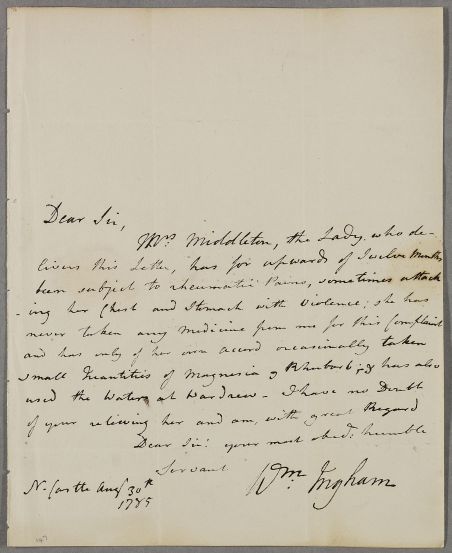 Dear Sir,
Mrs Middleton, the Lady who de-
livers this Letter, has for upwards of Twelve Months
been subject to rheumatic Pains, sometimes attack
-ing her Chest and Stomach with Violence; she has
never taken any Medicine from me for this Complaint
and has only of her own accord occasionally taken
small Quantities of Magnesia & Rhubarb; & has also
used the Waters at Wardrew - I have no Doubt
of your relieving her and am, with great Regard
Dear Sir: your most obedt: humble
Servant
Wm. Ingham
N. Castle Augt 30th
1785